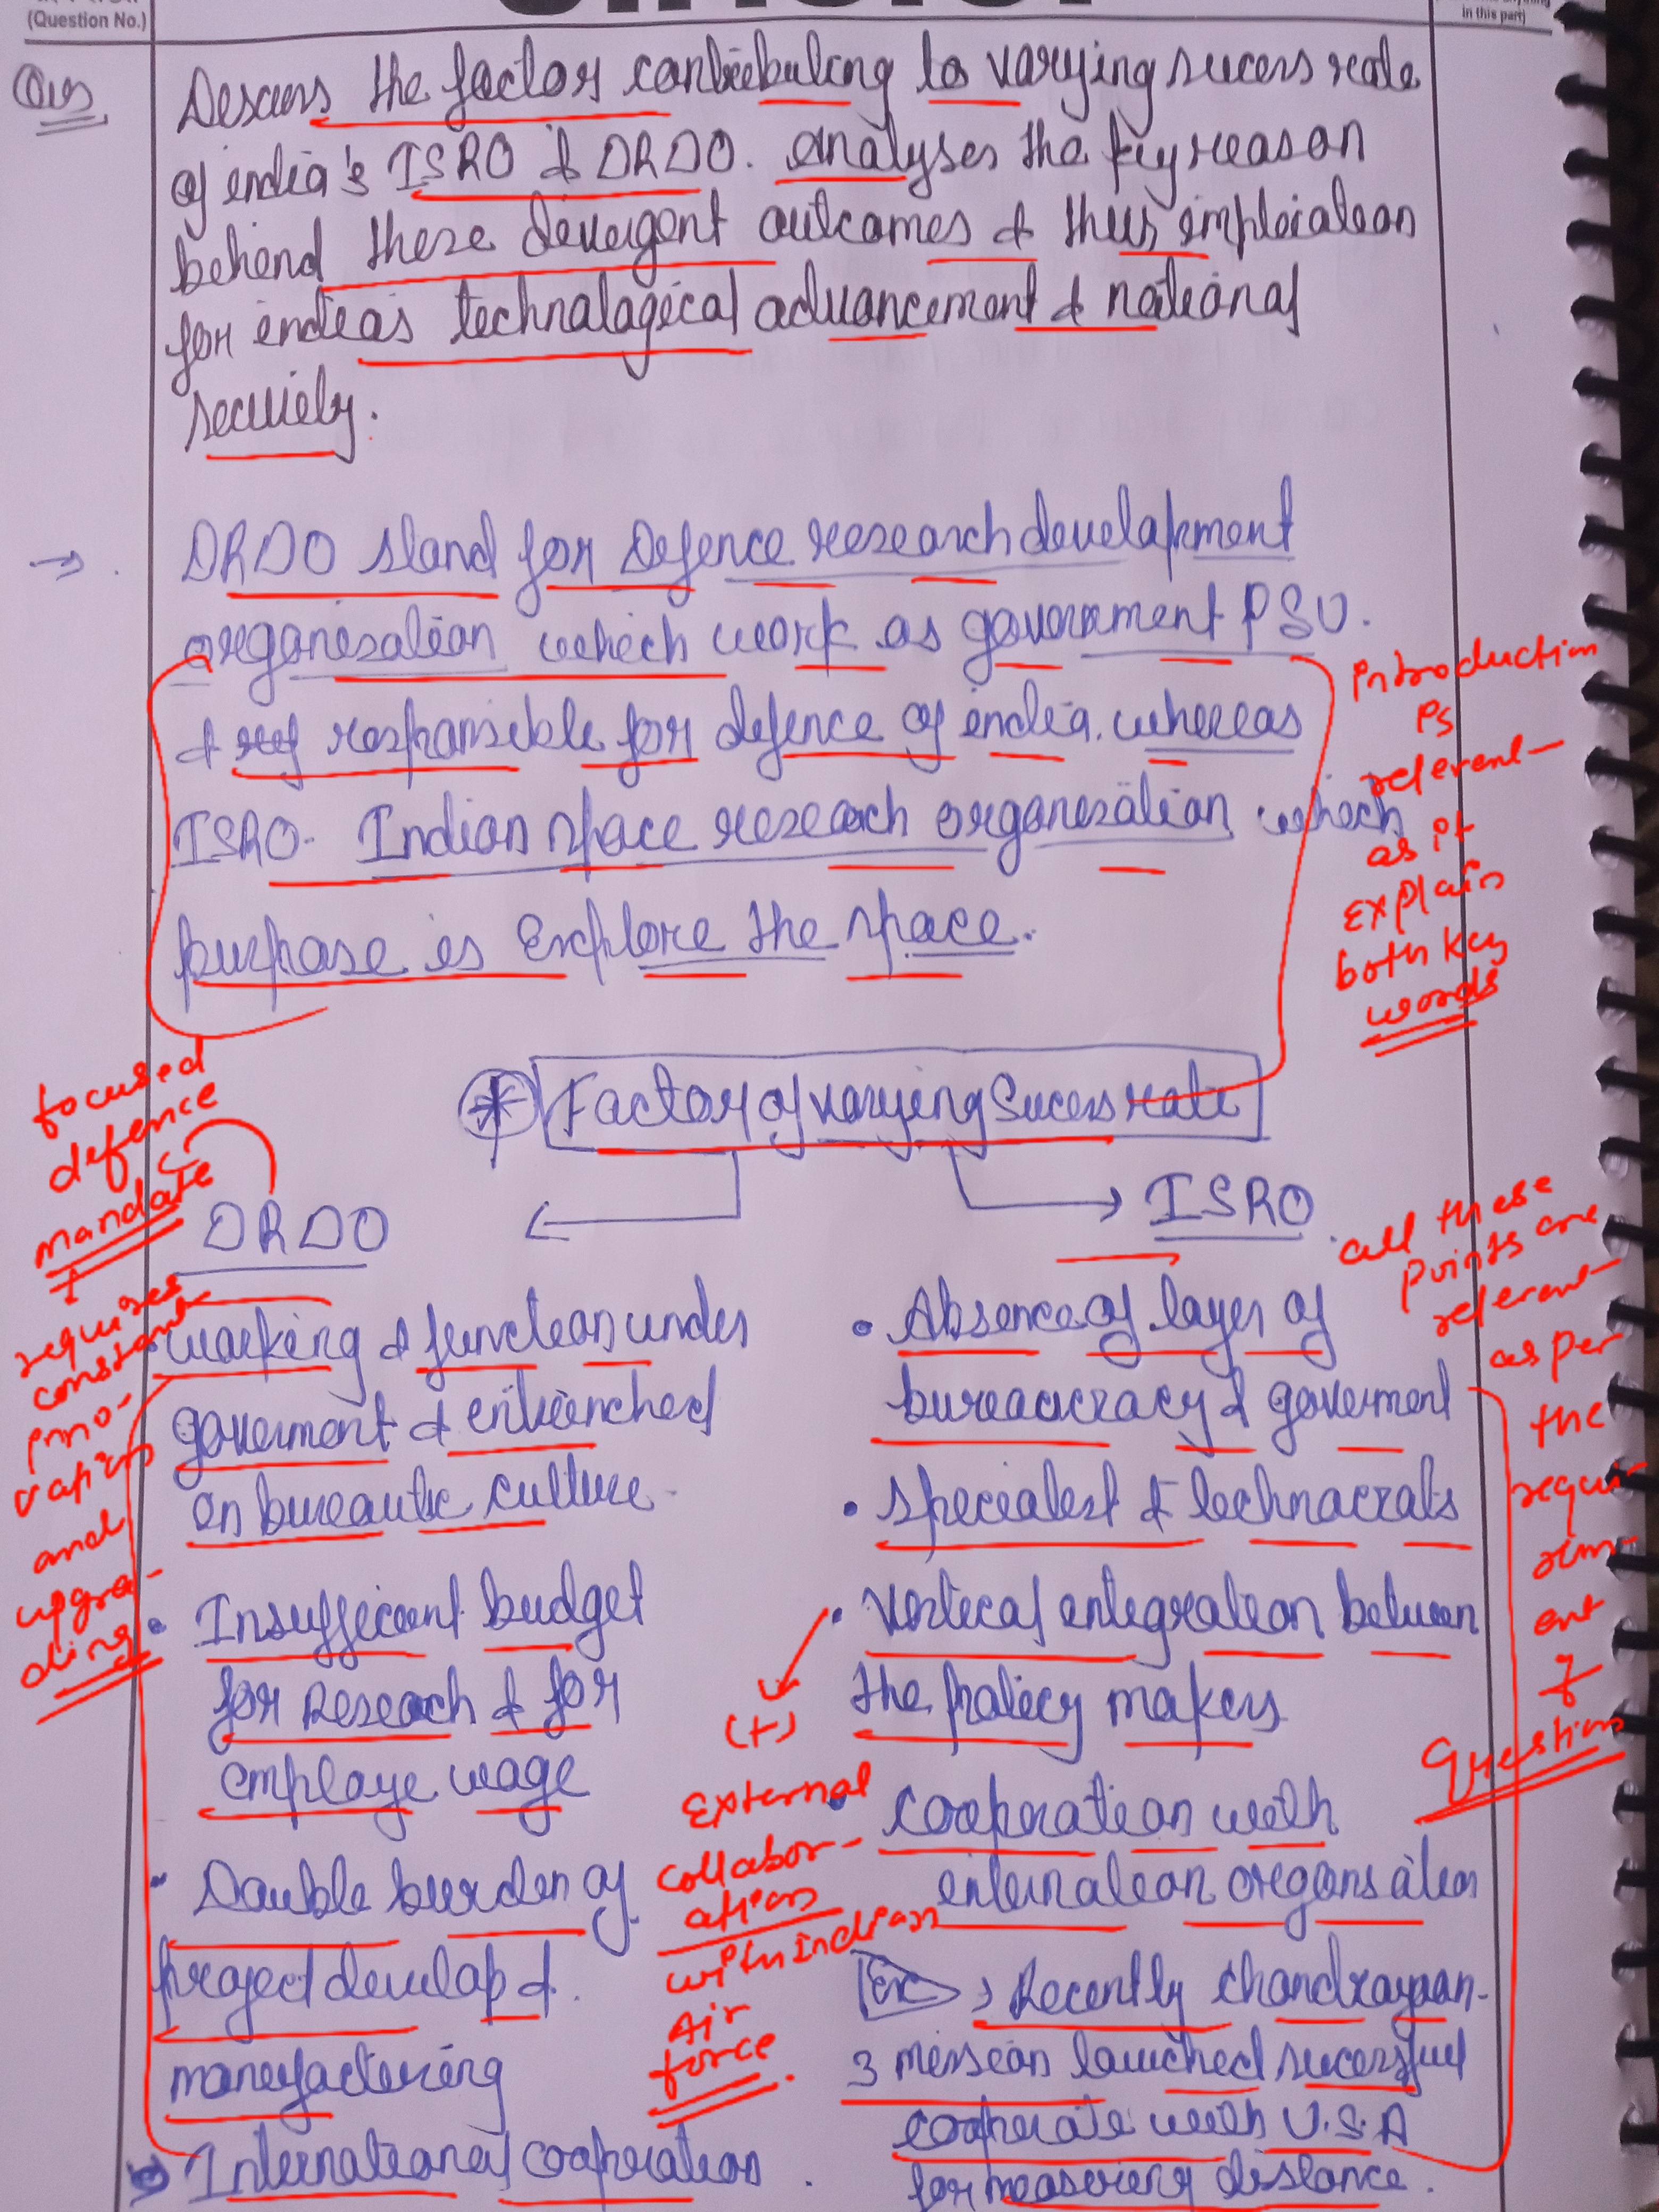 (Question No.)
in this part)
Ques
Discuss the factors contributing to varying sucess rate
of india's ISRO & DRDO. Analyses the key reason
behind these divergent outcomes & thier implciation
for indias technalogical advancement & national
security.
→ DRDO stand for Defence research development
organisation which work as government PSU.
& responsible for defence of india. whereas
ISRO- Indian space research organisation which
purpose is Explore the space.
Introduction
is
referent-
as it
explain
both key
words
* Factor of varying Sucess rate
focused
defence
mandate
+
requires
constant
inno-
vations
and
upgra-
ding
DRDO
• working & function under
goverment & entrenched
on bureautic culture.
• Insufficient budget
for Research & for
employe wage
• Double burden of
project develop &
manufacturing
• International cooperation
ISRO
• Absence of layer of
bureaucracy & goverment
• specialist & technocrats
• vertical integration between
the policy makers
• cooperation with
internation organisation
Ex → Recently chandrayaan-
3 mission launched sucessful
cooperate with U.S.A
for measuring distance.
(+)
External
collabor-
ation
with Indian
Air
force
all these
points are
referent-
as per
the
requi-
rem-
ent
of
Question